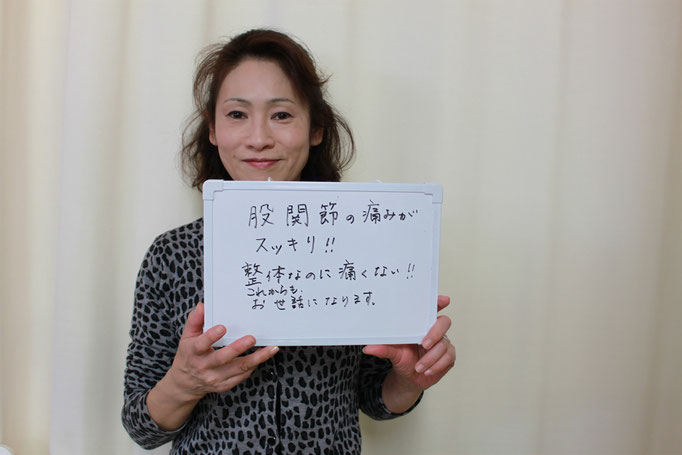 股関節の痛みが
スッキリ!!
整体なのに痛くない!!
これからも、
お世話になります。